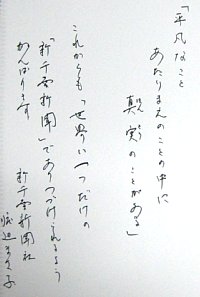 「平凡なこと
あたりまえのことの中に
真実のことがある」
ほんとう
これからも「世界に一つだけの
新千里新聞」でありつづけられるよう
がんばります
新千里新聞社
渡辺